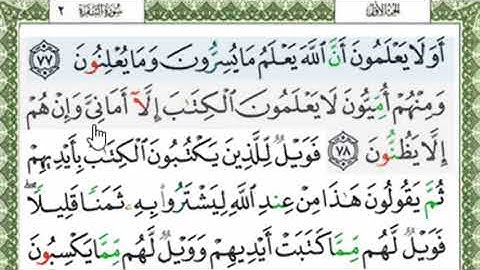 الجزء الأول
سورة البقرة
٢
أَوَلَا يَعْلَمُونَ أَنَّ اللَّهَ يَعْلَمُ مَا يُسِرُّونَ وَمَا يُعْلِنُونَ ٧٧
وَمِنْهُمْ أُمِّيُّونَ لَا يَعْلَمُونَ الْكِتَٰبَ إِلَّآ أَمَانِىَّ وَإِنْ هُمْ
إِلَّا يَظُنُّونَ ٧٨ فَوَيْلٌ لِّلَّذِينَ يَكْتُبُونَ الْكِتَٰبَ بِأَيْدِيهِمْ
ثُمَّ يَقُولُونَ هَٰذَا مِنْ عِندِ اللَّهِ لِيَشْتَرُوا بِهِۦ ثَمَنًا قَلِيلًا ۖ
فَوَيْلٌ لَّهُم مِّمَّا كَتَبَتْ أَيْدِيهِمْ وَوَيْلٌ لَّهُم مِّمَّا يَكْسِبُونَ